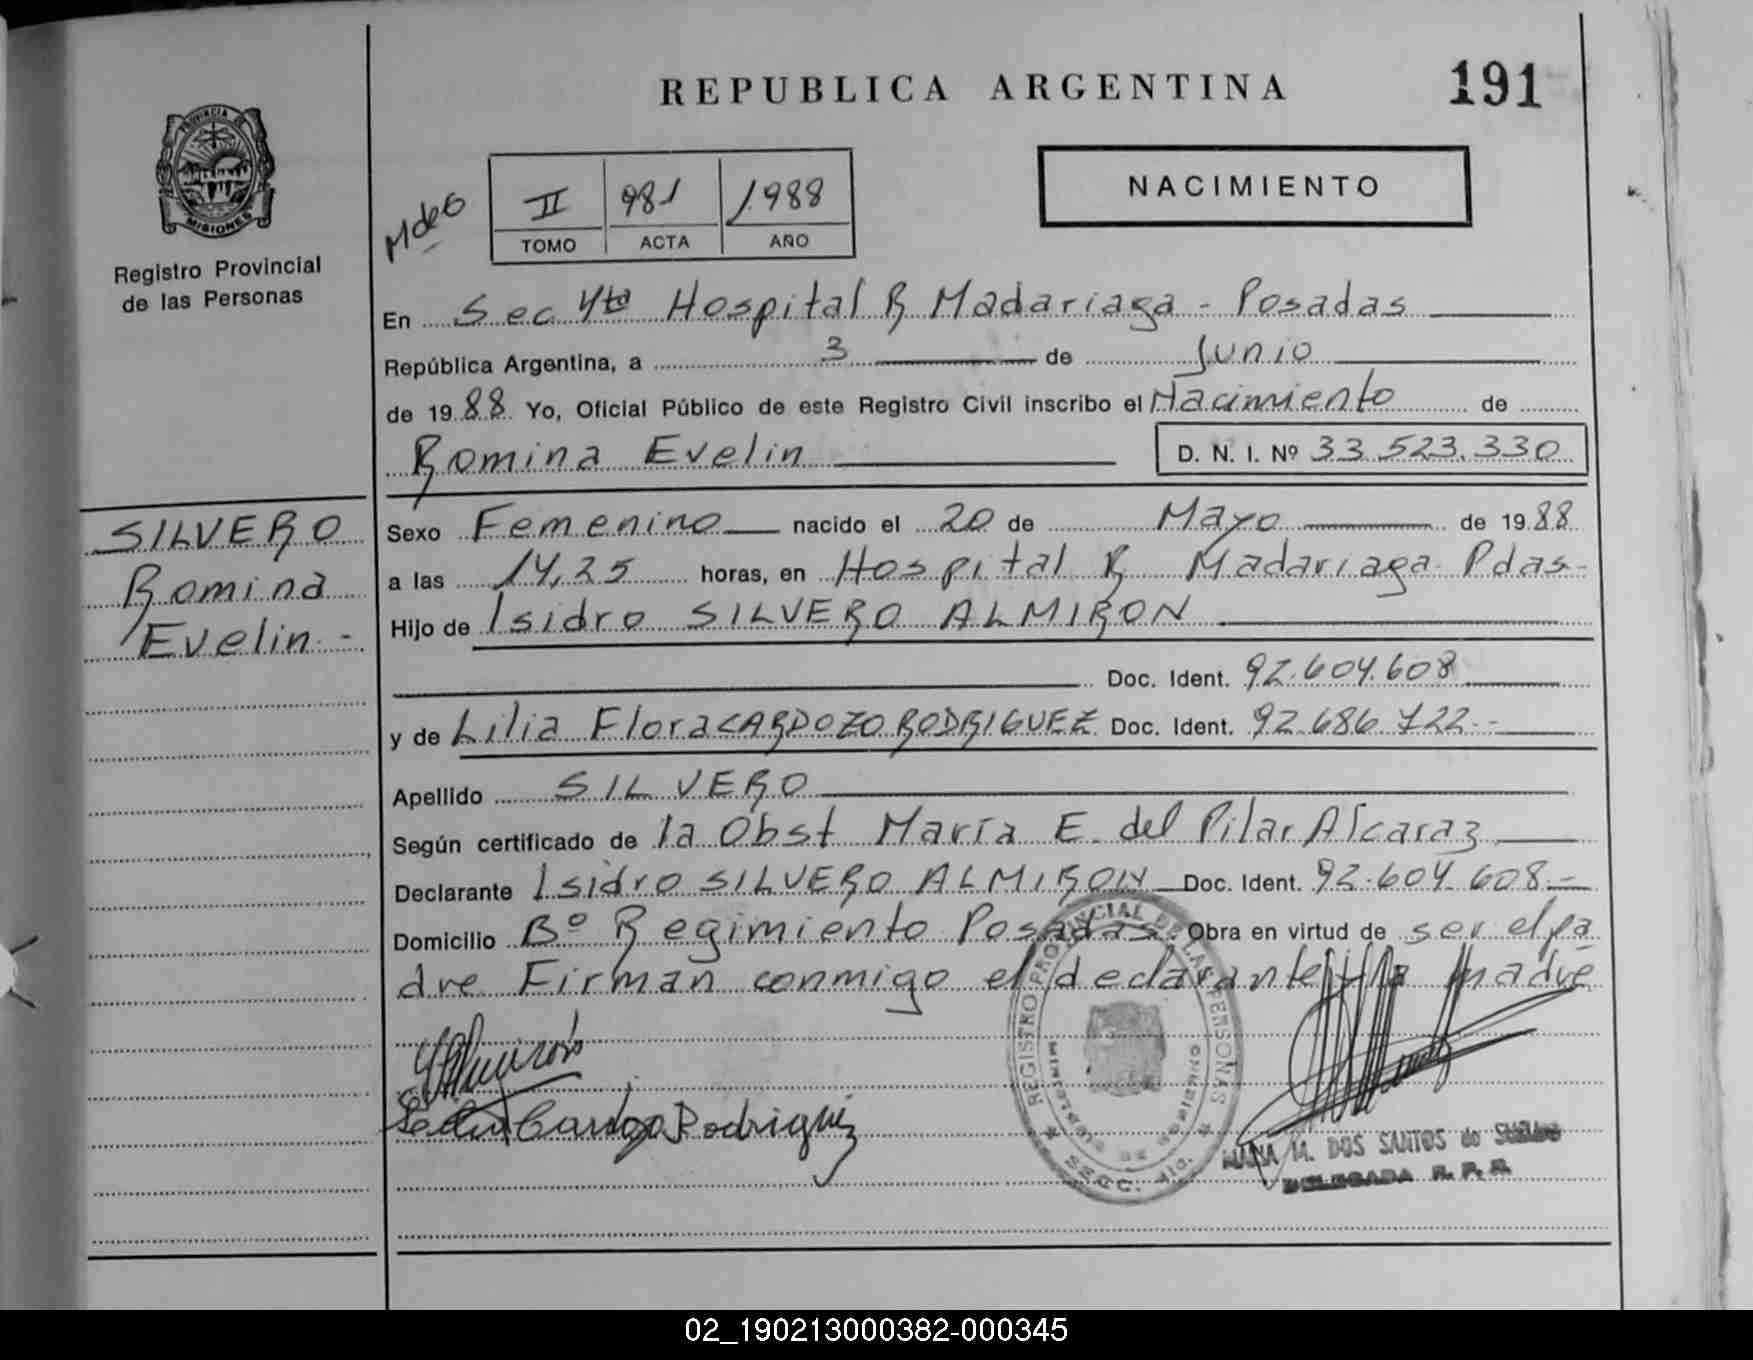 REPUBLICA ARGENTINA
191
PROVINCIA DE
MISIONES
Registro Provincial
de las Personas
Mdeo
II 981 1988
TOMO ACTA AÑO
NACIMIENTO
En Sec 4ta Hospital R Madariaga - Posadas
República Argentina, a 3 de Junio
de 1988 Yo, Oficial Público de este Registro Civil inscribo el Nacimiento de
Romina Evelin D. N. I. Nº 33.523.330
SILVERO
Romina
Evelin.-
Sexo Femenino nacido el 20 de Mayo de 1988
a las 14,25 horas, en Hospital R Madariaga Pdas-
Hijo de Isidro SILVERO ALMIRON
Doc. Ident. 92.604.608
y de Lilia Flora CARDOZO RODRIGUEZ Doc. Ident. 92.686.722.-
Apellido SILVERO
Según certificado de la Obst María E. del Pilar Alcaraz
Declarante Isidro SILVERO ALMIRON Doc. Ident. 92.604.608.-
Domicilio Bº Regimiento Posadas. Obra en virtud de ser el pa
dre Firman conmigo el declarante y la madre
REGISTRO PROVINCIAL DE LAS PERSONAS
Cardozo Rodriguez
MARIA M. DOS SANTOS de
DELEGADA R. P. P.
02_190213000382-000345